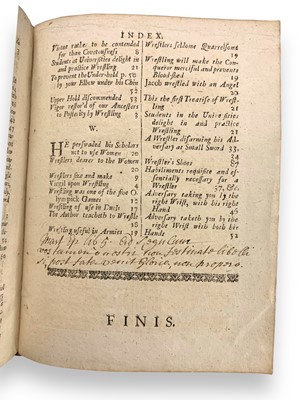 INDEX.
Virtue rather to be contended for than Covetousness 8
Students at Universities delight in and practice Wrestling 21
To prevent the Under-hold p. 50
by your Elbow under his Chin 52
Upper Hold discommended 53
Vigor restor'd of our Ancestors to Posterity by Wrestling 3
W.
HE perswaded his Scholars not to use Women 20
Wrestlers dearer to the Women 20
Wrestlers size and make 9
Virgil upon Wrestling 2
Wrestling was one of the five Olympick Games 12
Wrestling of use in Duels 17
The Author teacheth to Wrestle 18
Wrestling useful in Armies 19
Wrestlers seldome Quarrelsome
Wrestling will make the Conqueror merciful and prevents Blood-shed 19
Jacob wrestled with an Angel 20
This the first Treatise of Wrestling
Students in the Universities delight in and practice Wrestling 21
A Wrestler disarming his Adversary at Small Sword 33. 34
Wrestler's Shoes 87
Habiliments requisite and essentially necessary for a Wrestler 37, &c.
Adversary taking you by the right Wrist, with his Right Hand 46
Adversary taketh you by the right Wrist with both his Hands 52
Mart. p. 465. Ed.
Vos tamen o nostri
si post fata venit gloria, non propero.
FINIS.